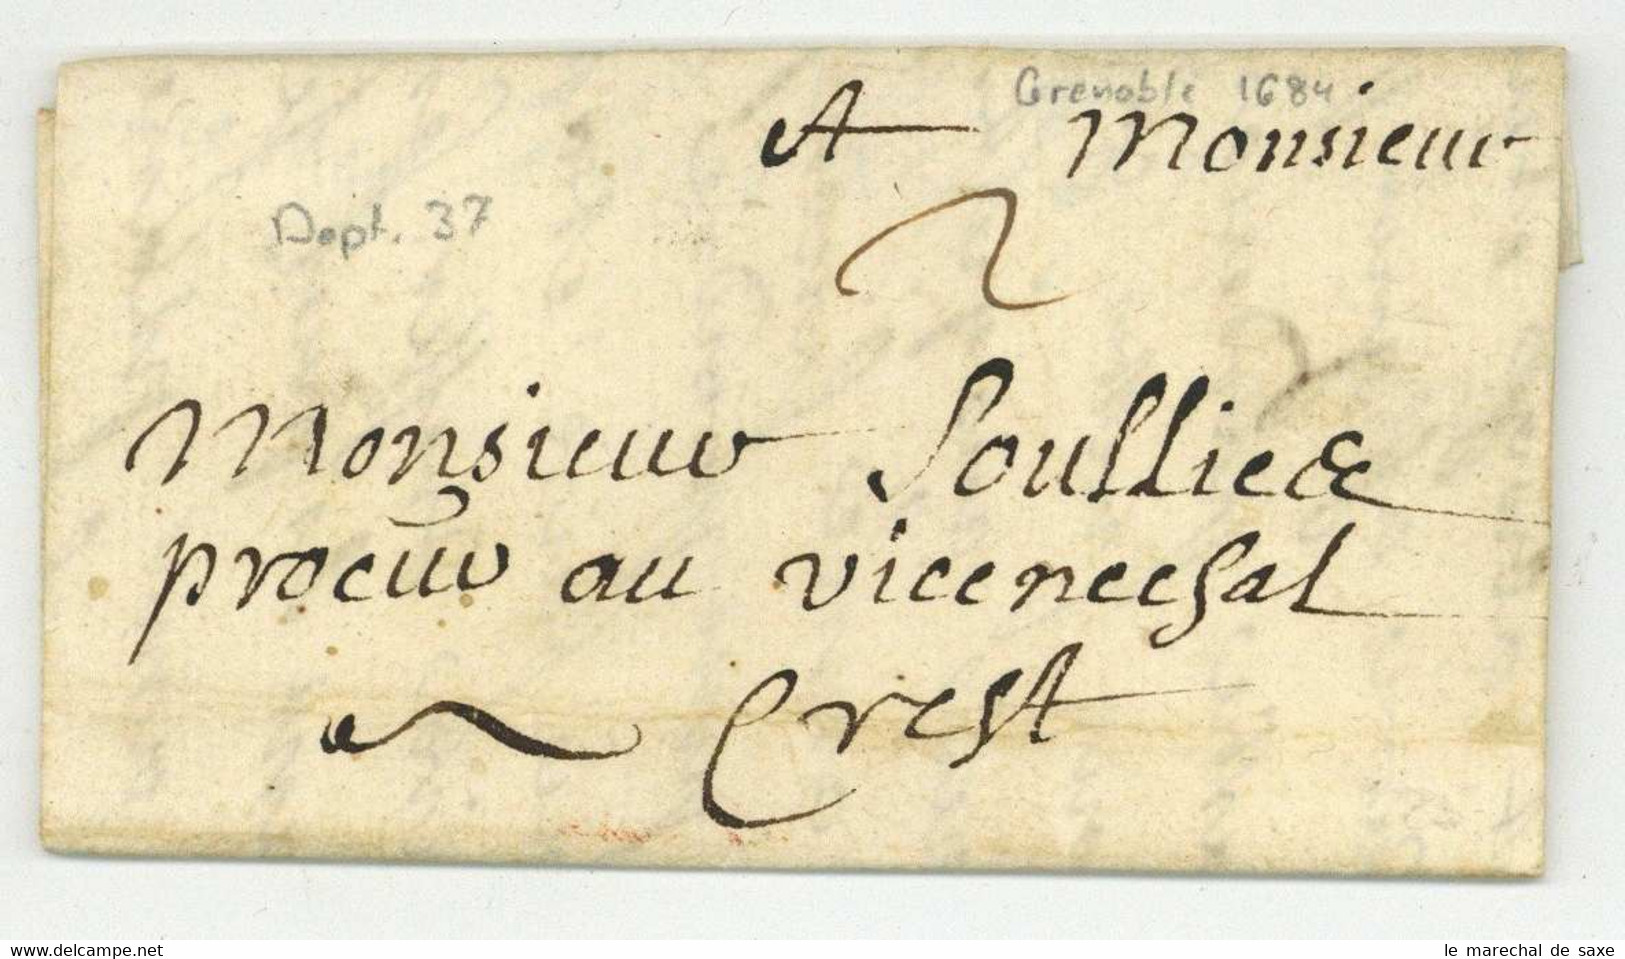 Grenoble 1684
A Monsieur
Dept. 37
2
Monsieur Soullier
procur au vicenechal
a Crest
le marechal de saxe